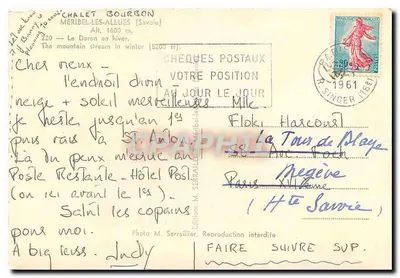 CHALET BOURBON
MERIBEL-LES-ALLUES (Savoie)
Alt. 1600 m.
220 — Le Doron en hiver.
The mountain stream in winter (5200 ft).
CHEQUES POSTAUX
VOTRE POSITION
AU JOUR LE JOUR
1961
R. SINGER (16E)
Cher vieux -
l'endroit divin -
neige + soleil merveilleuses
je reste jusqu'au 1er
puis vais à St. Anton.
La
peux m'écrire au
Poste Restante - Hôtel Post
(on ici avant le 1er)
Salut les copains
pour moi.
A big kiss. Judy
Mlle
Floki Harcourt
La Tour de Blaye
Ave. Foch
Megève
Paris XVIème
(Hte Savoie)
FAIRE SUIVRE SVP.
Photo M. Serraillier Reproduction interdite